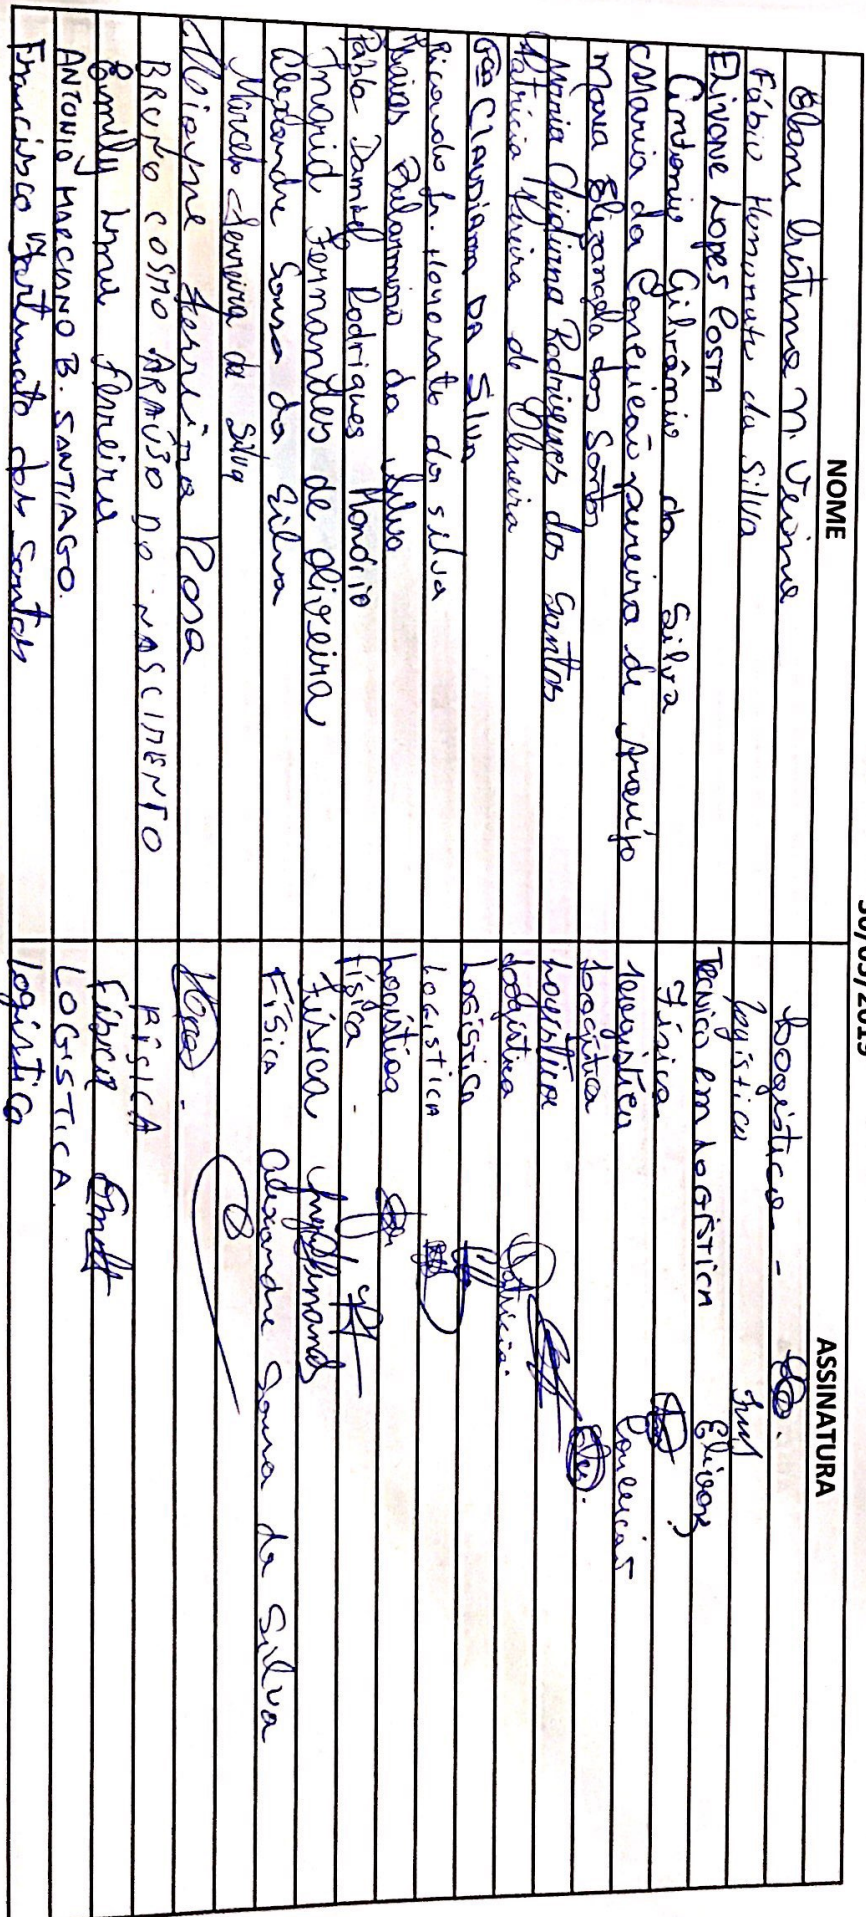 30/05/2019
NOME ASSINATURA
Elane Cristina N. Vieira Logística -
Fábio Humonate da Silva Logística
Elivone Lopes Costa Técnico em Logística Elivone
Antonio Gilvânio da Silva Física
Maria da Conceição pereira de Araujo Logística Conceição
Maria Elizangela dos Santos Logística
Maria Cleidiana Rodrigues dos Santos Logística
Patrícia Pereira de Oliveira Logística Patrícia
Fca CLAUDIANA DA SILVA Logística
Ricardo da silva Logística
Belarmino da Silva Logística
Pablo Daniel Rodrigues Física
Ingrid Fernandes de Oliveira Física
Alexandre Sousa da Silva Física Alexandre Sousa da Silva
Ferreira da Silva
Ferreira Rosa
BRUNO COSMO ARAÚJO DO NASCIMENTO FÍSICA
Emilly Ferreira Física
ANTONIO MARCIANO B. SANTIAGO. LOGISTICA.
Francisco Fortunato dos Santos Logística